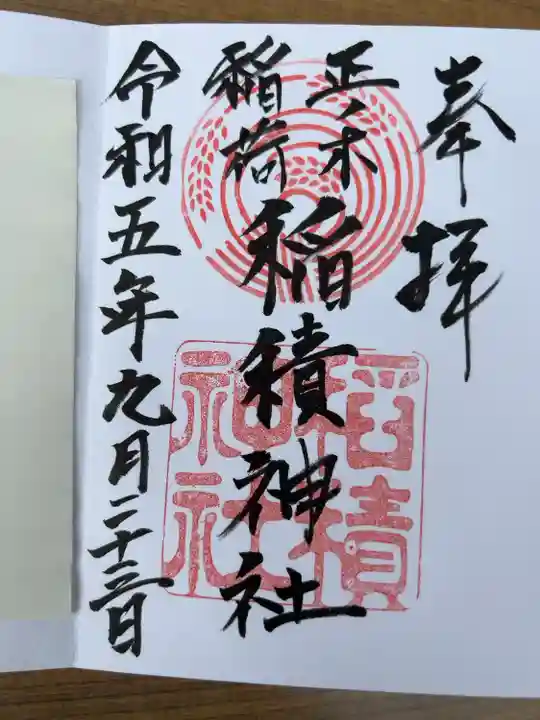 奉拝
正木
稲荷
稲積神社
令和五年九月二十三日
稲積
神社